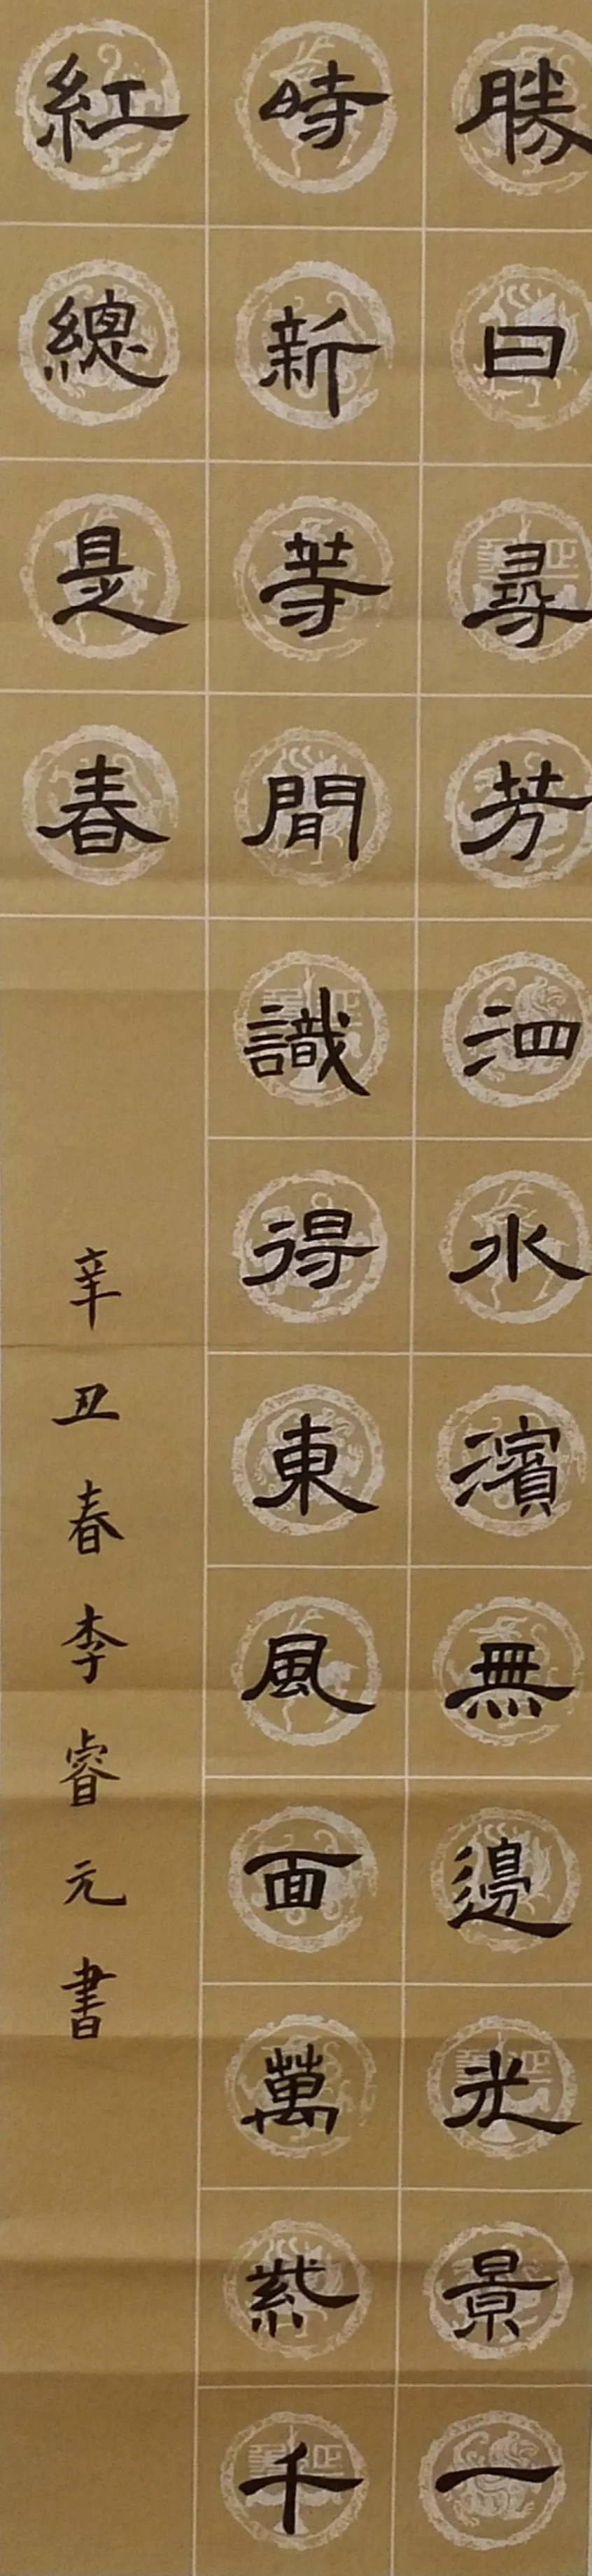 勝日尋芳泗水濱無邊光景一
時新等閒識得東風面萬紫千
紅總是春
辛丑春李睿元書